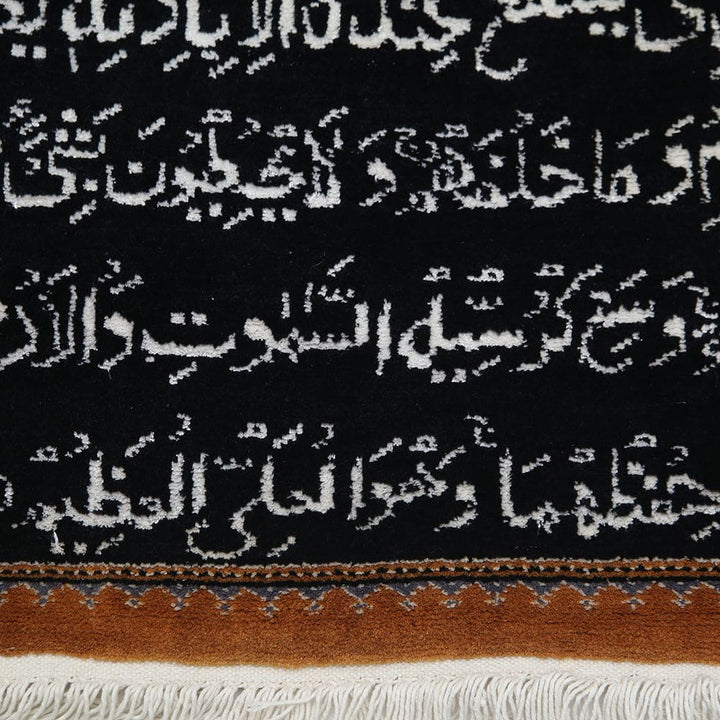 يشفع عنده إلا بإذنه
وما خلفهم ولا يحيطون بشيء
وسع كرسيه السموت والأر
حفظهما وهو العلي العظيم